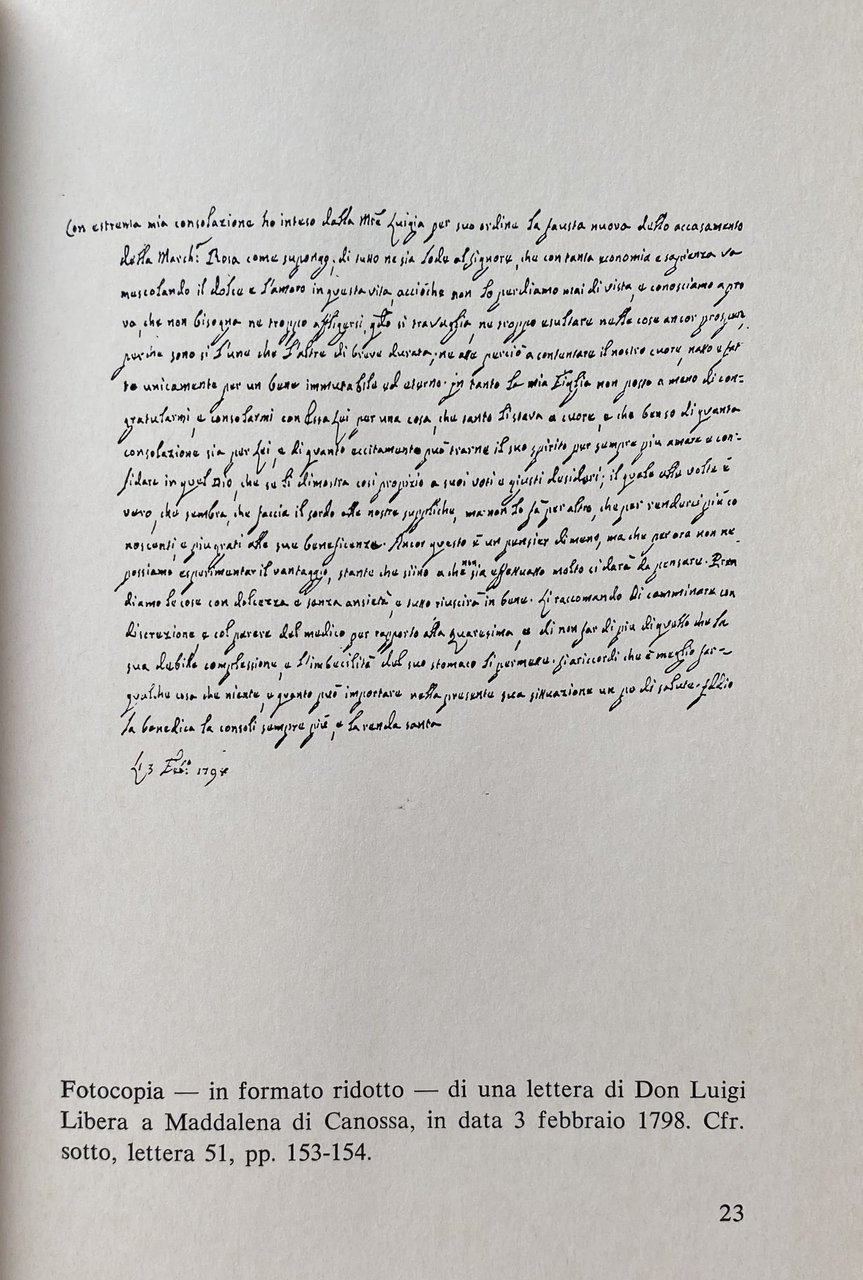 Con estrema mia consolazione ho inteso dalla Mre Luigia per suo ordine la fausta nuova dello accasamento
della March.ª Rosa come supongo; di tutto ne sia lode al signore, che con tanta economia e sapienza va
mescolando il dolce e l'amaro in questa vita, acciòche non lo perdiamo mai di vista, e conosciamo a pro
va, che non bisogna ne troppo affligersi, qdo si travaglia, ne troppo esultare nelle cose ancor prospere,
perche sono si l'une che l'altre di breve durata; ne atte perciò a contentare il nostro cuore, nato e fat
to unicamente per un bene immutabile ed eterno. in tanto la mia Figlia non posso a meno di con=
gratularmi, e consolarmi con Essa Lei per una cosa, che tanto li stava a cuore, e che ben so di quanta
consolazione sia per Lei, e di quanto eccitamento può trarne il suo spirito per sempre piu amare e con=
fidare in quel Dio, che se li dimostra cosi propizio a suoi voti e giusti desideri; il quale alle volte è
vero, che sembra, che faccia il sordo alle nostre suppliche, ma non lo fà per altro, che per renderci più co
noscenti, e piu grati alle sue beneficenze. Ancor questo è un pensier di meno, ma che per ora non ne
possiamo esperimentar il vantaggio, stante che sino a che non sia effettuato molto ci darà da pensare. Pren
diamo le cose con dolcezza e senza ansietà, e tutto riuscirà in bene. Li raccomando di camminare con
discrezione, e col parere del medico per rapporto alla quaresima, e di non far di piu di quello che la
sua debile complessione, e l'imbecilità del suo stomaco li permette. si ricordi che è meglio far=
qualche cosa che niente, e quanto può importare nella presente sua situazione un po di salute. Iddio
la benedica la consoli sempre più, e la renda santa
Li 3 Febº. 1798
Fotocopia — in formato ridotto — di una lettera di Don Luigi
Libera a Maddalena di Canossa, in data 3 febbraio 1798. Cfr.
sotto, lettera 51, pp. 153-154.
23